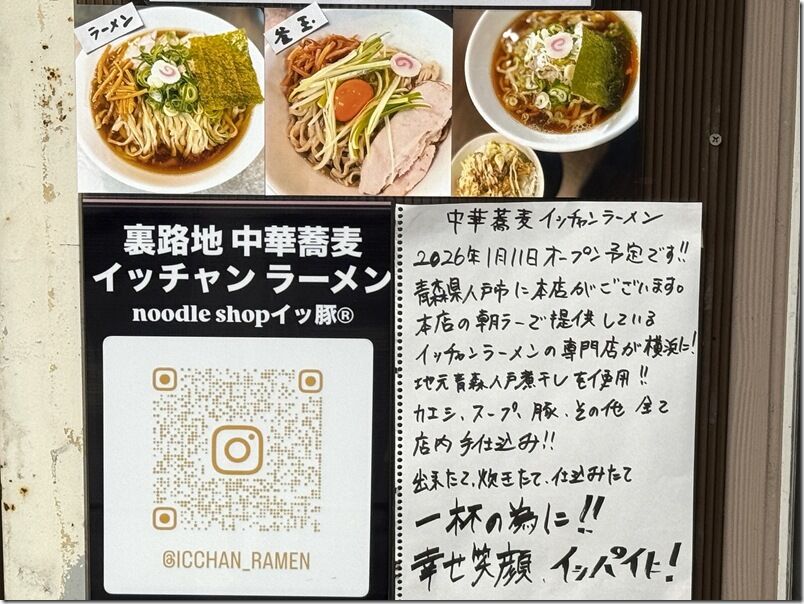 ラーメン
釜玉.
裏路地 中華蕎麦
イッチャン ラーメン
noodle shopイッ豚®
@ICCHAN_RAMEN
中華蕎麦 イッチャンラーメン
2026年1月11日オープン予定です!!
青森県八戸市に本店がございます。
本店の朝ラーで提供している
イッチャンラーメンの専門店が横浜に!
地元青森八戸煮干しを使用!!
カエシ、スープ、豚、その他 全て
店内手仕込み!!
出来たて、炊きたて、仕込みたて
一杯の為に!!
幸せ笑顔、イッパイに!